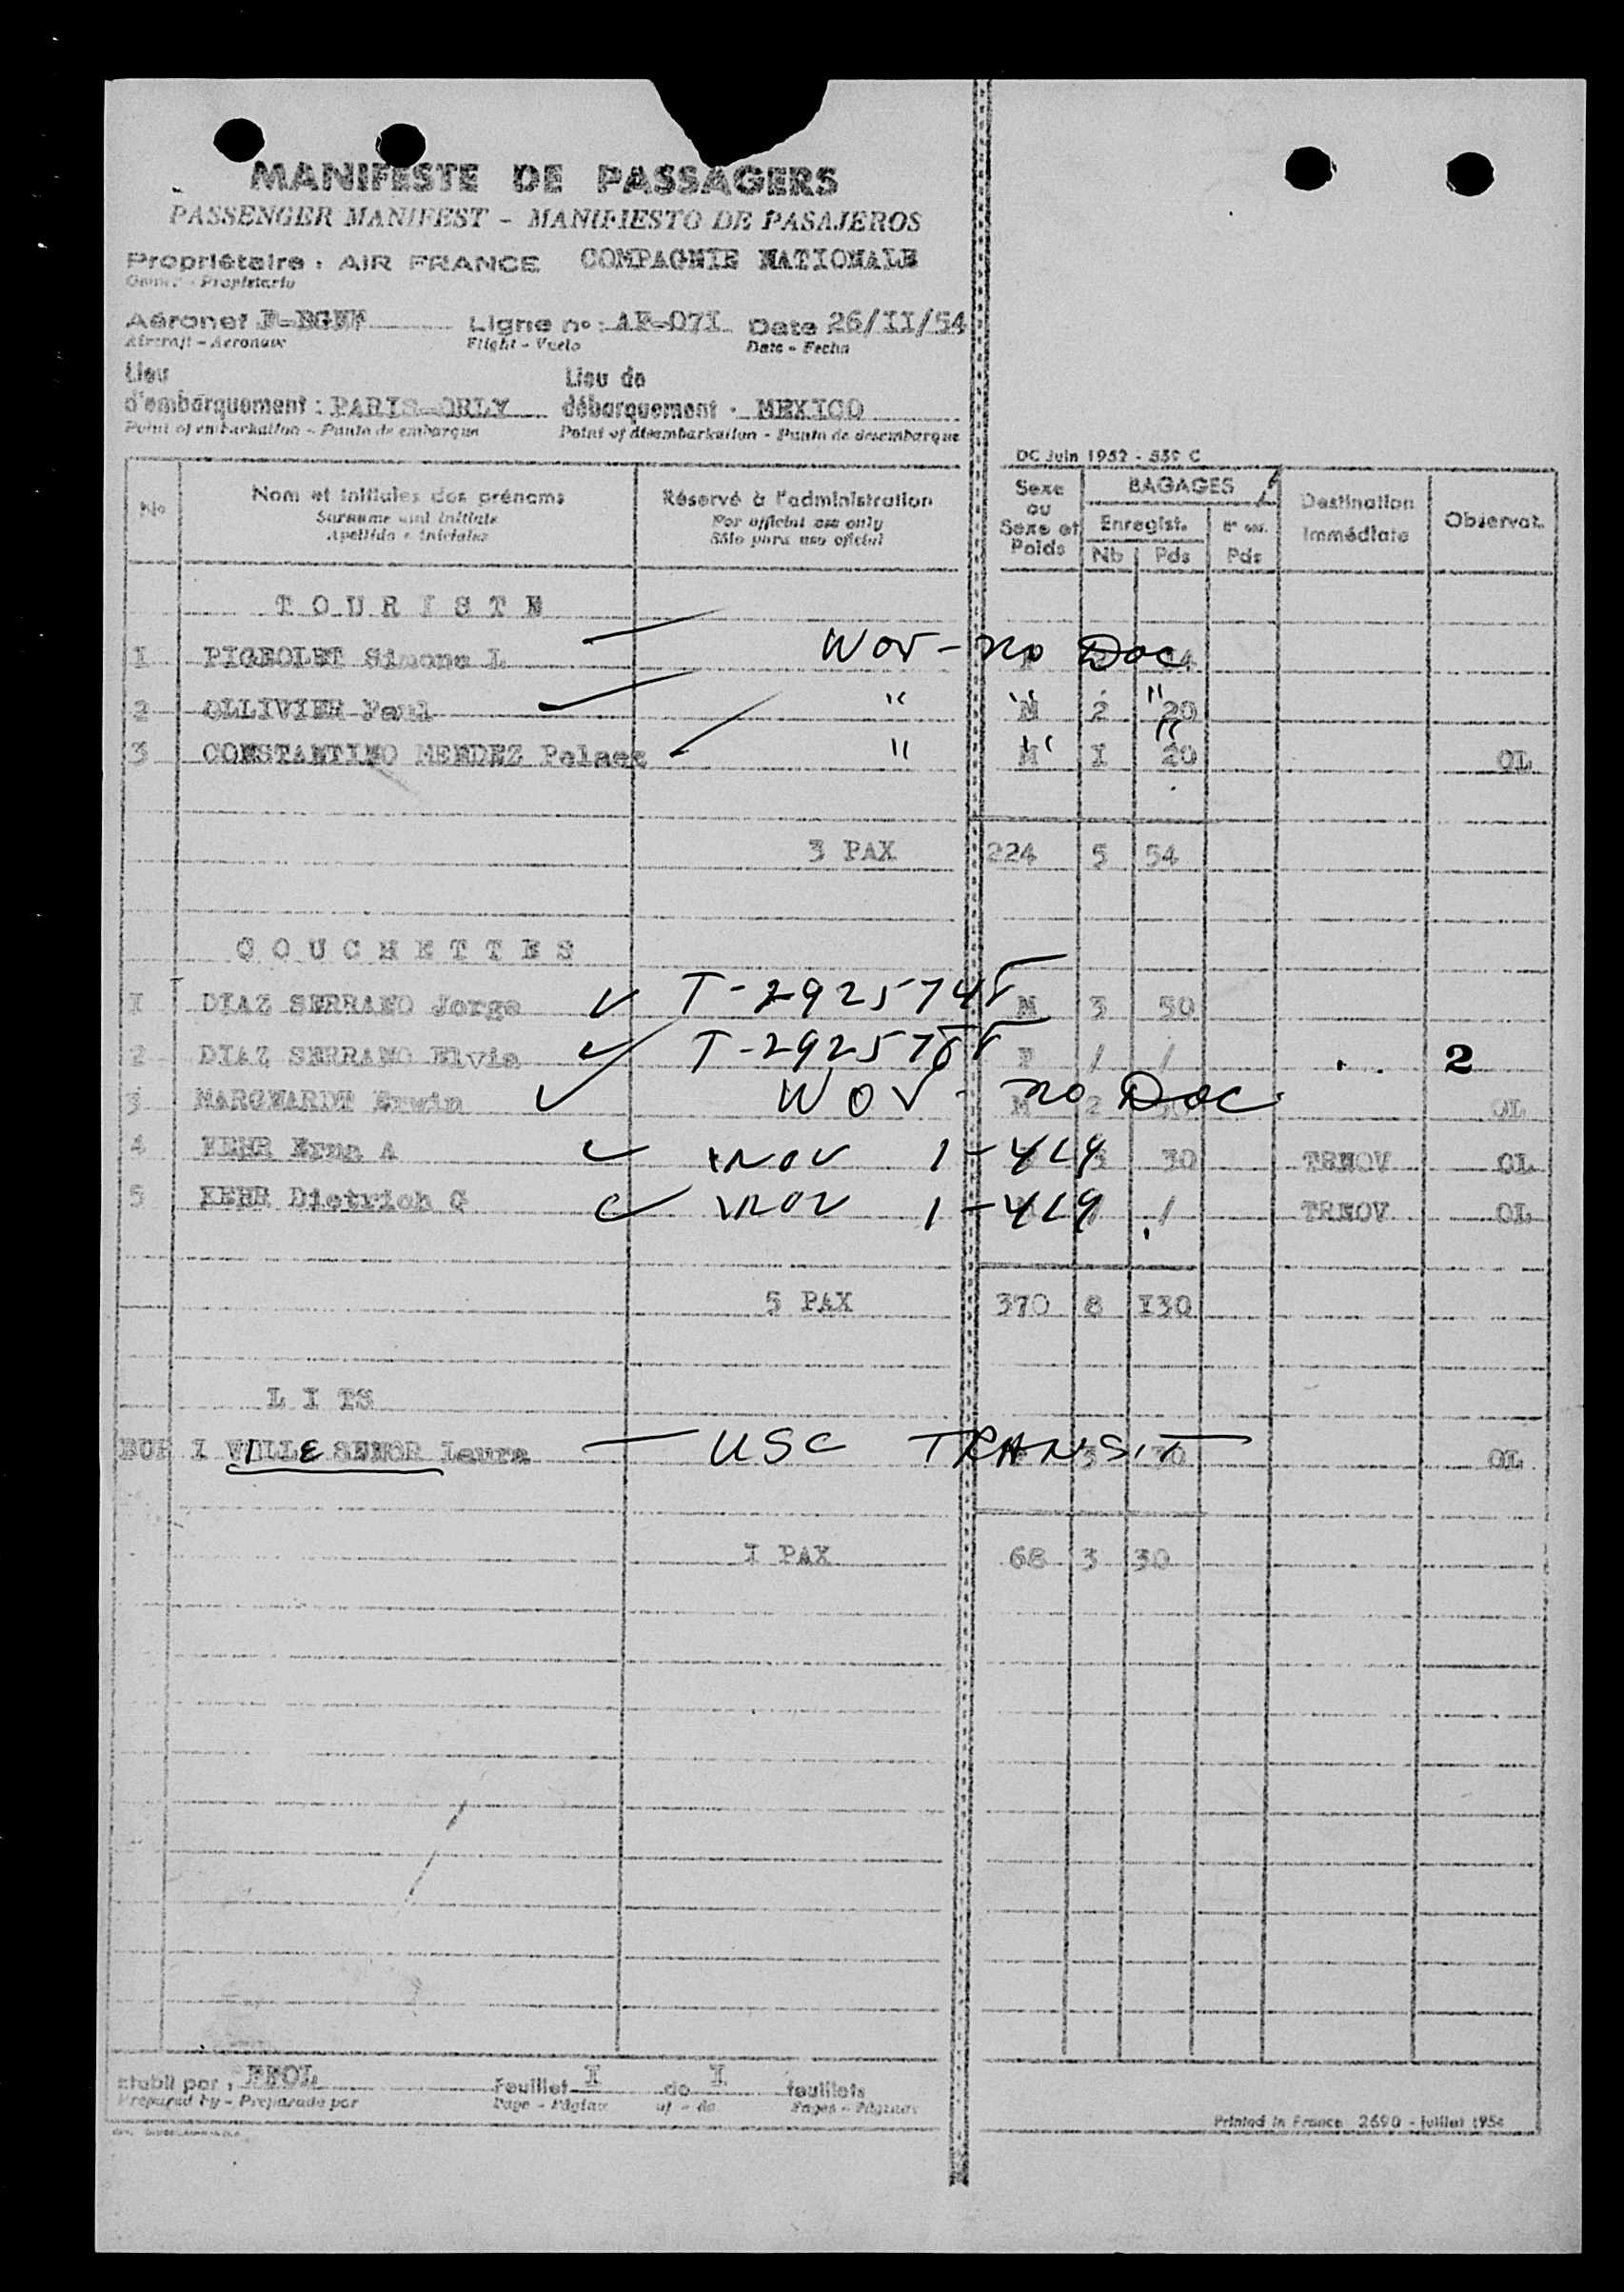 MANIFESTE DE PASSAGERS
PASSENGER MANIFEST - MANIFIESTO DE PASAJEROS
Propriétaire : AIR FRANCE COMPAGNIE NATIONALE
Owner - Propietario
Aéronef Ligne n° : AF-07I Date 26/II/54
Aircraft - Aeronave Flight - Vuelo Date - Fecha
Lieu d'embarquement : PARIS-ORLY Lieu de débarquement : MEXICO
Point of embarkation - Punto de embarque Point of disembarkation - Punto de desembarque
DC Juin 1952 - 539 C
No Nom et initiales des prénoms Réservé à l'administration Sexe ou Sexe et Poids BAGAGES Destination immédiate Observat.
Surname and initials For official use only Enregist.
Apellido e iniciales Sólo para uso oficial Nb Pds Pds
TOURISTE
I PIGEOLET Simone L WOV - no Doc 14
2 OLLIVIER Paul " " " M 2 20
3 CONSTANTINO MENDEZ Pelaez " " " M I 20 OL
3 PAX 224 5 54
COUCHETTES
I DIAZ SERRANO Jorge T-2925748 M 3 50
2 DIAZ SERRANO Elvia T-2925788 F / / 2
3 MARQWARDT Erwin WOV - no Doc M 2 OL
4 KEHR Erna A WOV 1-419 3 30 TRNOV OL
5 KEHR Dietrich G WOV 1-419 / / TRNOV OL
5 PAX 370 8 I30
LITS
I VILLE SENOR Laura USC TRANSIT 3 30 OL
I PAX 68 3 30
Etabli par : Feuillet I de I feuillets
Prepared by - Preparado por Page - Página of - de Pages - Páginas
Printed in France 2690 - juillet 1954